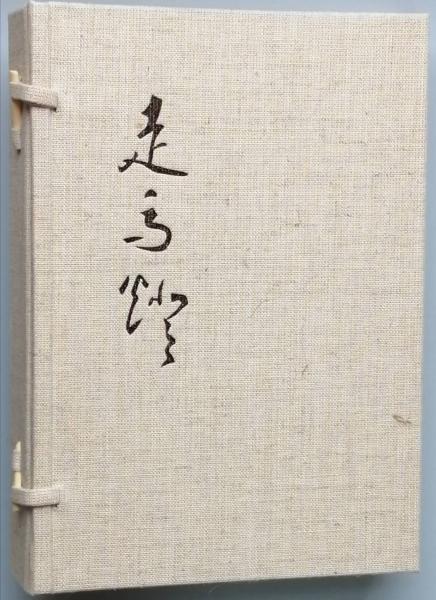 走馬燈